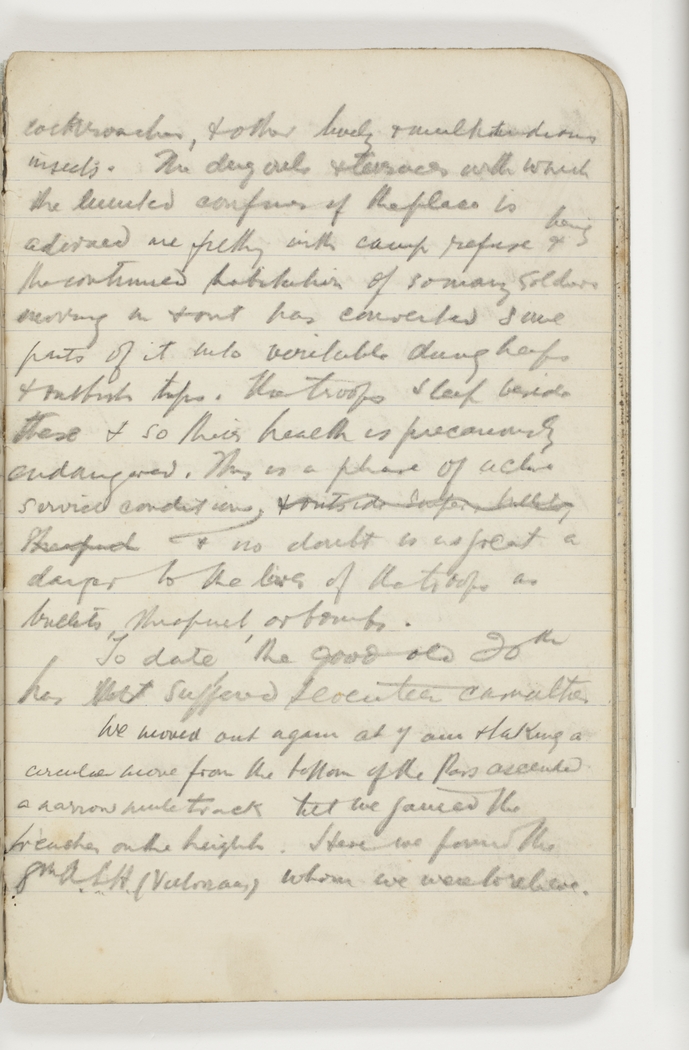 cockroaches, & other lively & multitudinous
insects. The dug outs & terraces with which
the limited confines of the place is
adorned are filthy with camp refuse & being
the continued habitation of so many soldiers
moving in & out has converted some
parts of it into veritable dung heaps
& rubbish tips. The troops sleep beside
these & so their health is precariously
endangered. This is a phase of active
service conditions, & outside
Shrapnel & no doubt is as great a
danger to the lives of the troops as
bullets, shrapnel, or bombs.
To date the good old 20th
has suffered seventeen casualties
We moved out again at 7 am & taking a
circular move from the bottom of the Pass ascended
a narrow mule track till we gained the
trenches on the heights. Here we found the
8th A.L.H. (Victorians) whom we were to relieve.